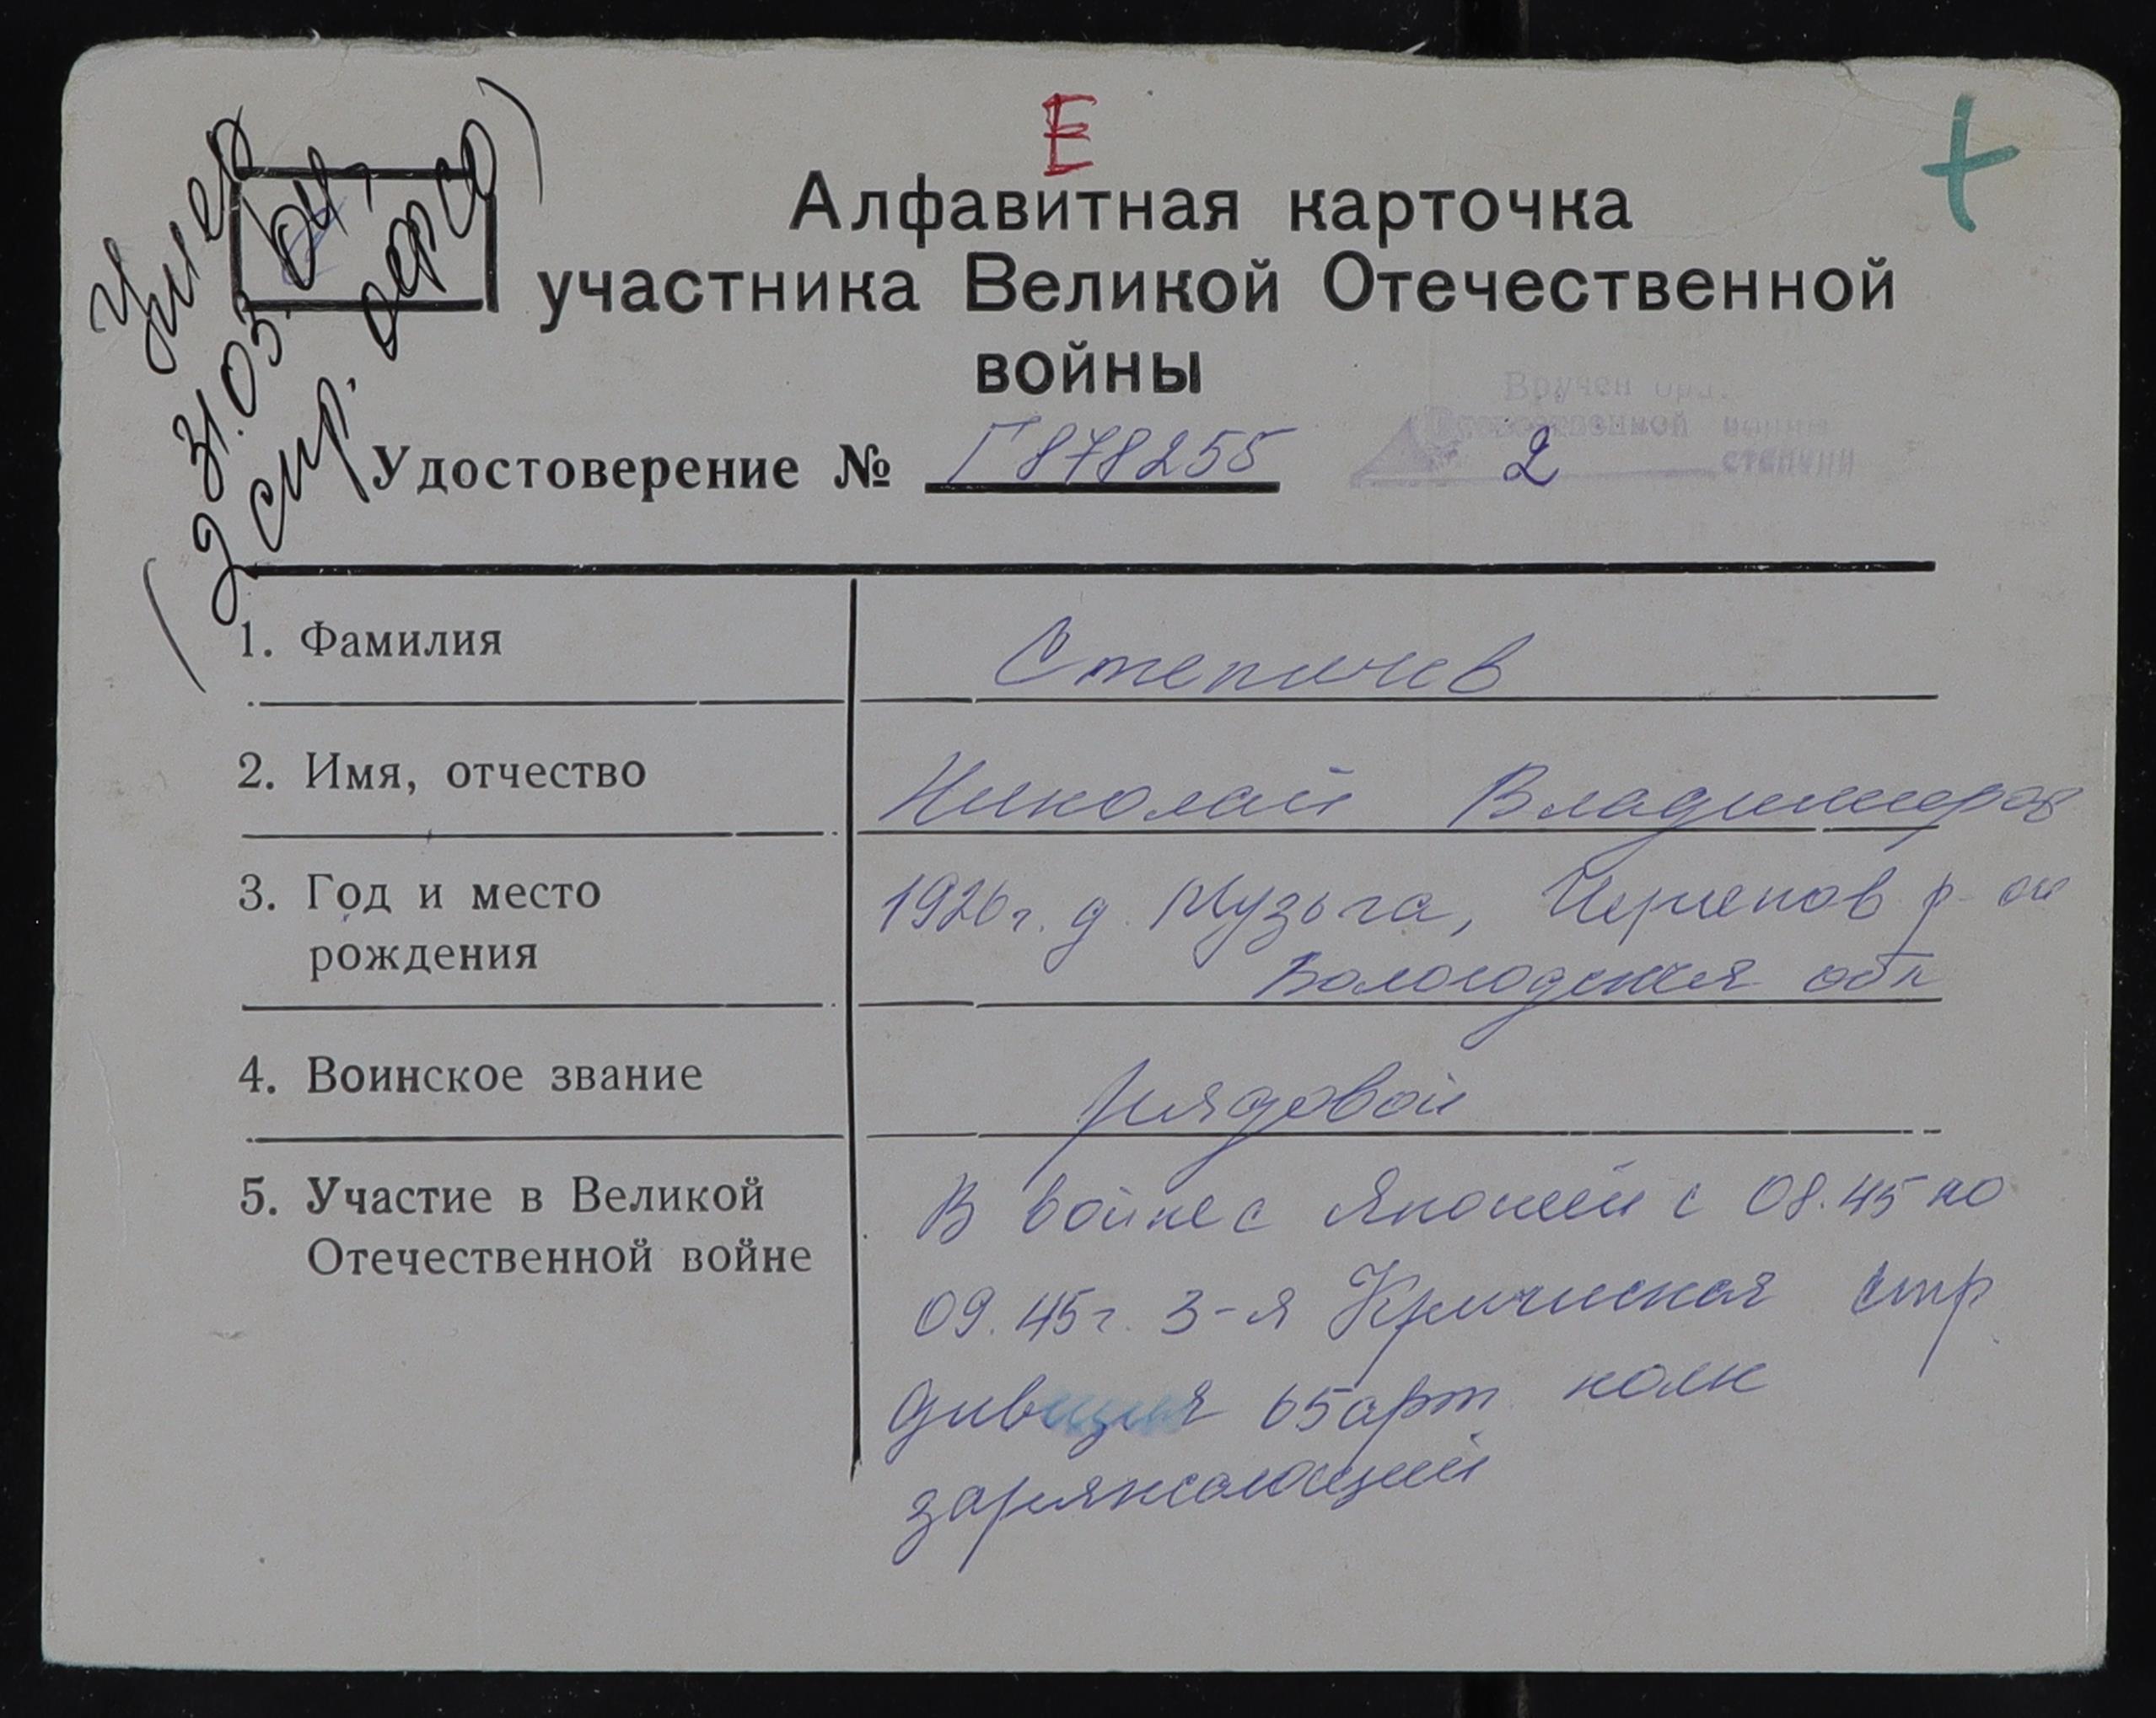 Е
Умер
31.03.04г
(2 стр.
Алфавитная карточка
участника Великой Отечественной
войны
Вручен орд.
Отечественной войны
2 степени
Удостоверение № Г 878255
1. Фамилия
Степичев
2. Имя, отчество
Николай Владимиров
3. Год и место
рождения
1926г. д. Музыга, Черепов р-он
Вологодская обл
4. Воинское звание
рядовой
5. Участие в Великой
Отечественной войне
В войне с Японией с 08.45 по
09.45г. 3-я стр
дивизия 65 арт полк
заряжающий